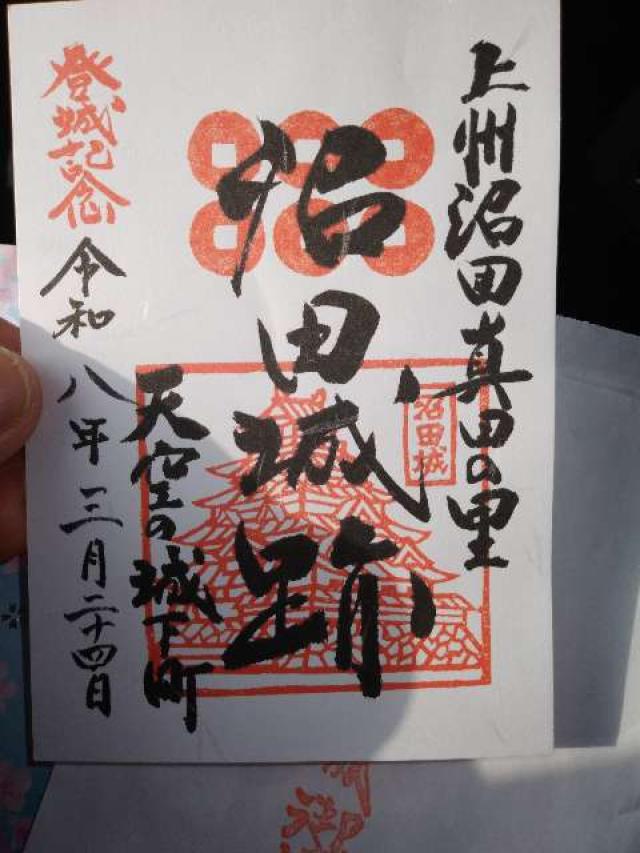 上州沼田真田の里
沼田城
沼田城跡
天空の城下町
登城記念
令和八年三月二十四日